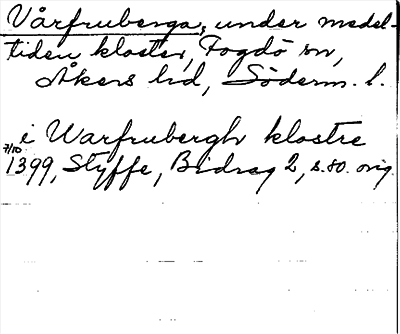 Vårfruberga, under medel-
tiden kloster, Fogdö sn,
Åkers hd, Söderm. l.
i Warfrubergh klostre
7/10 1399, Styffe, Bidrag 2, s. 80. orig.